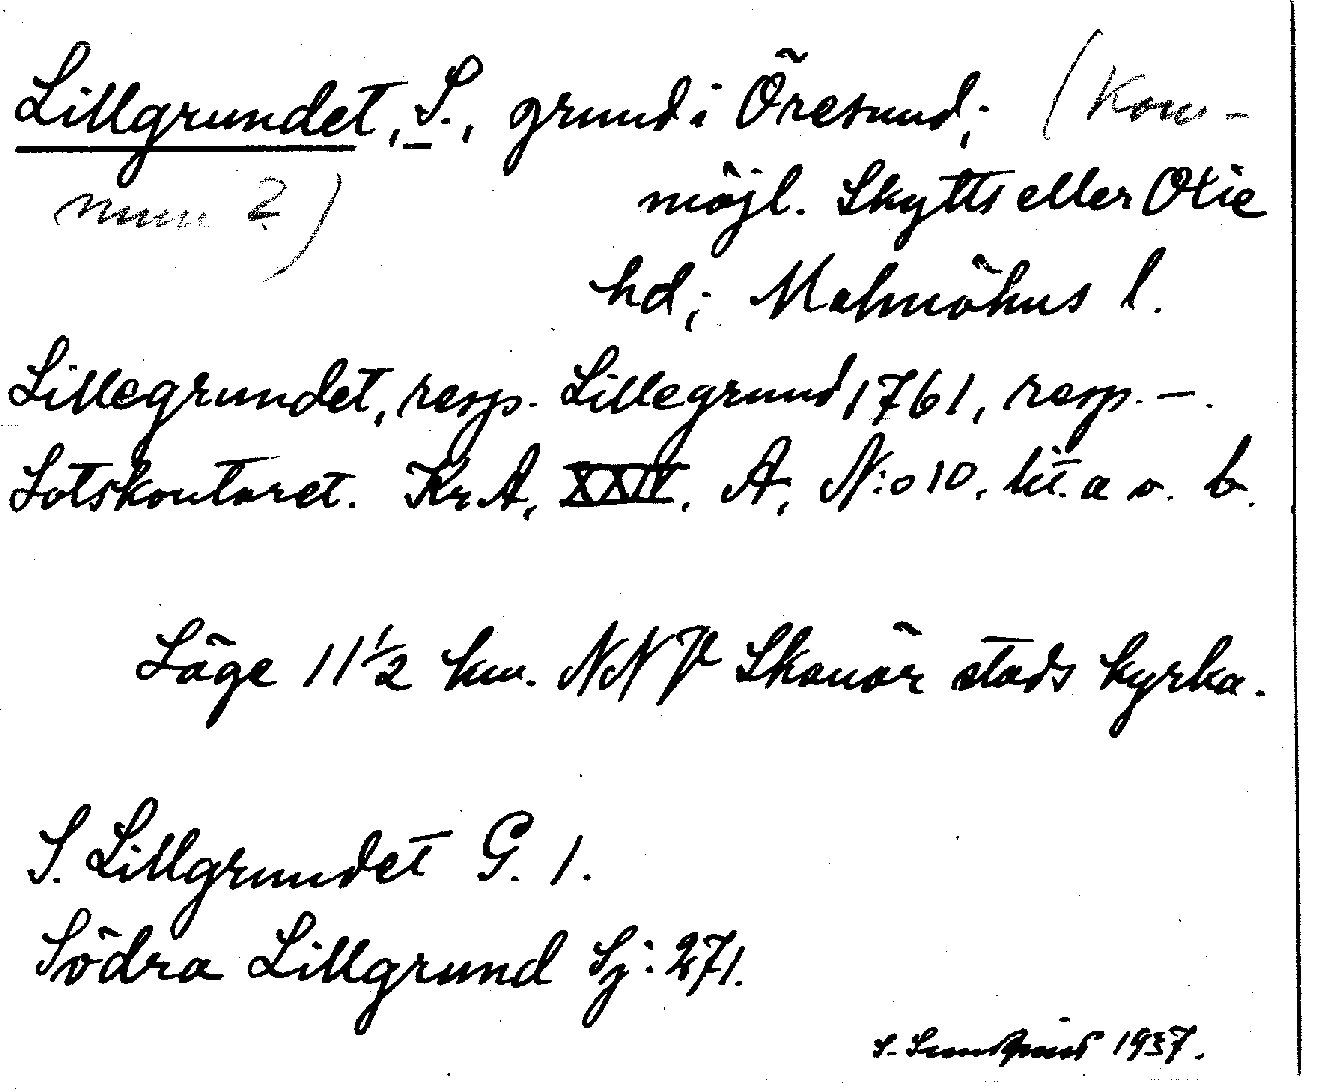 Lillgrundet, S., grund i Öresund; (Kom-
mun ?)
möjl. Skytts eller Oxie
hd; Malmöhus l.
Lillegrundet, resp. Lillegrund 1761, resp. —.
Lotskontoret. KrA, XXIV, A, N:o 10, lit. a o. b.
Läge 11 1/2 km. NNV Skanör stads kyrka.
S. Lillgrundet G. 1.
Södra Lillgrund Sj: 271.
S. Lundqvist 1937.